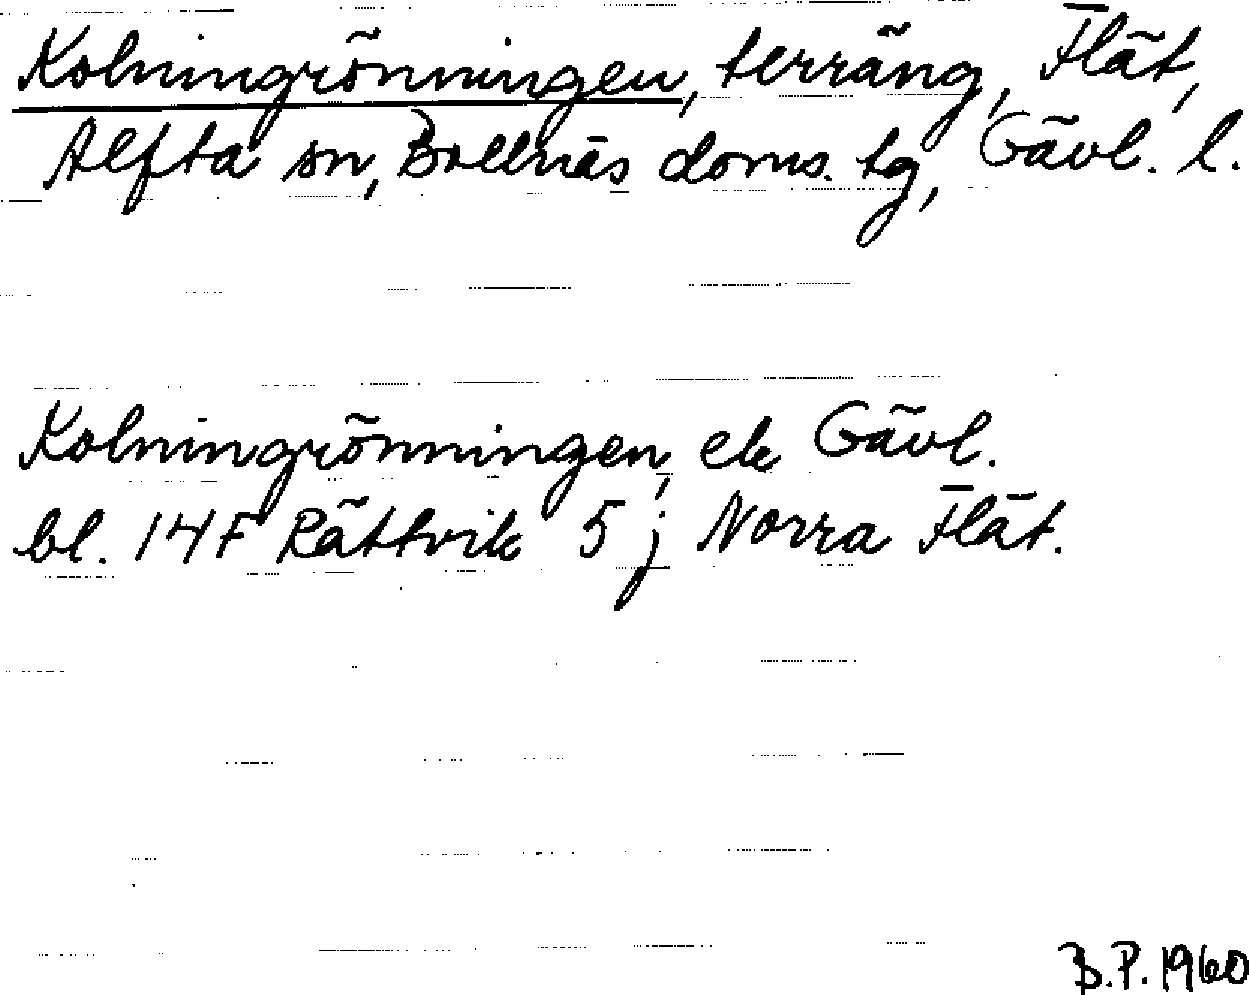 Kolningrönningen, terräng, Flät,
Alfta sn, Bollnäs doms. tg, Gävl. l.
Kolningrönningen, ek Gävl.
bl. 14F Rättvik 5j Norra Flät.
B.P. 1960